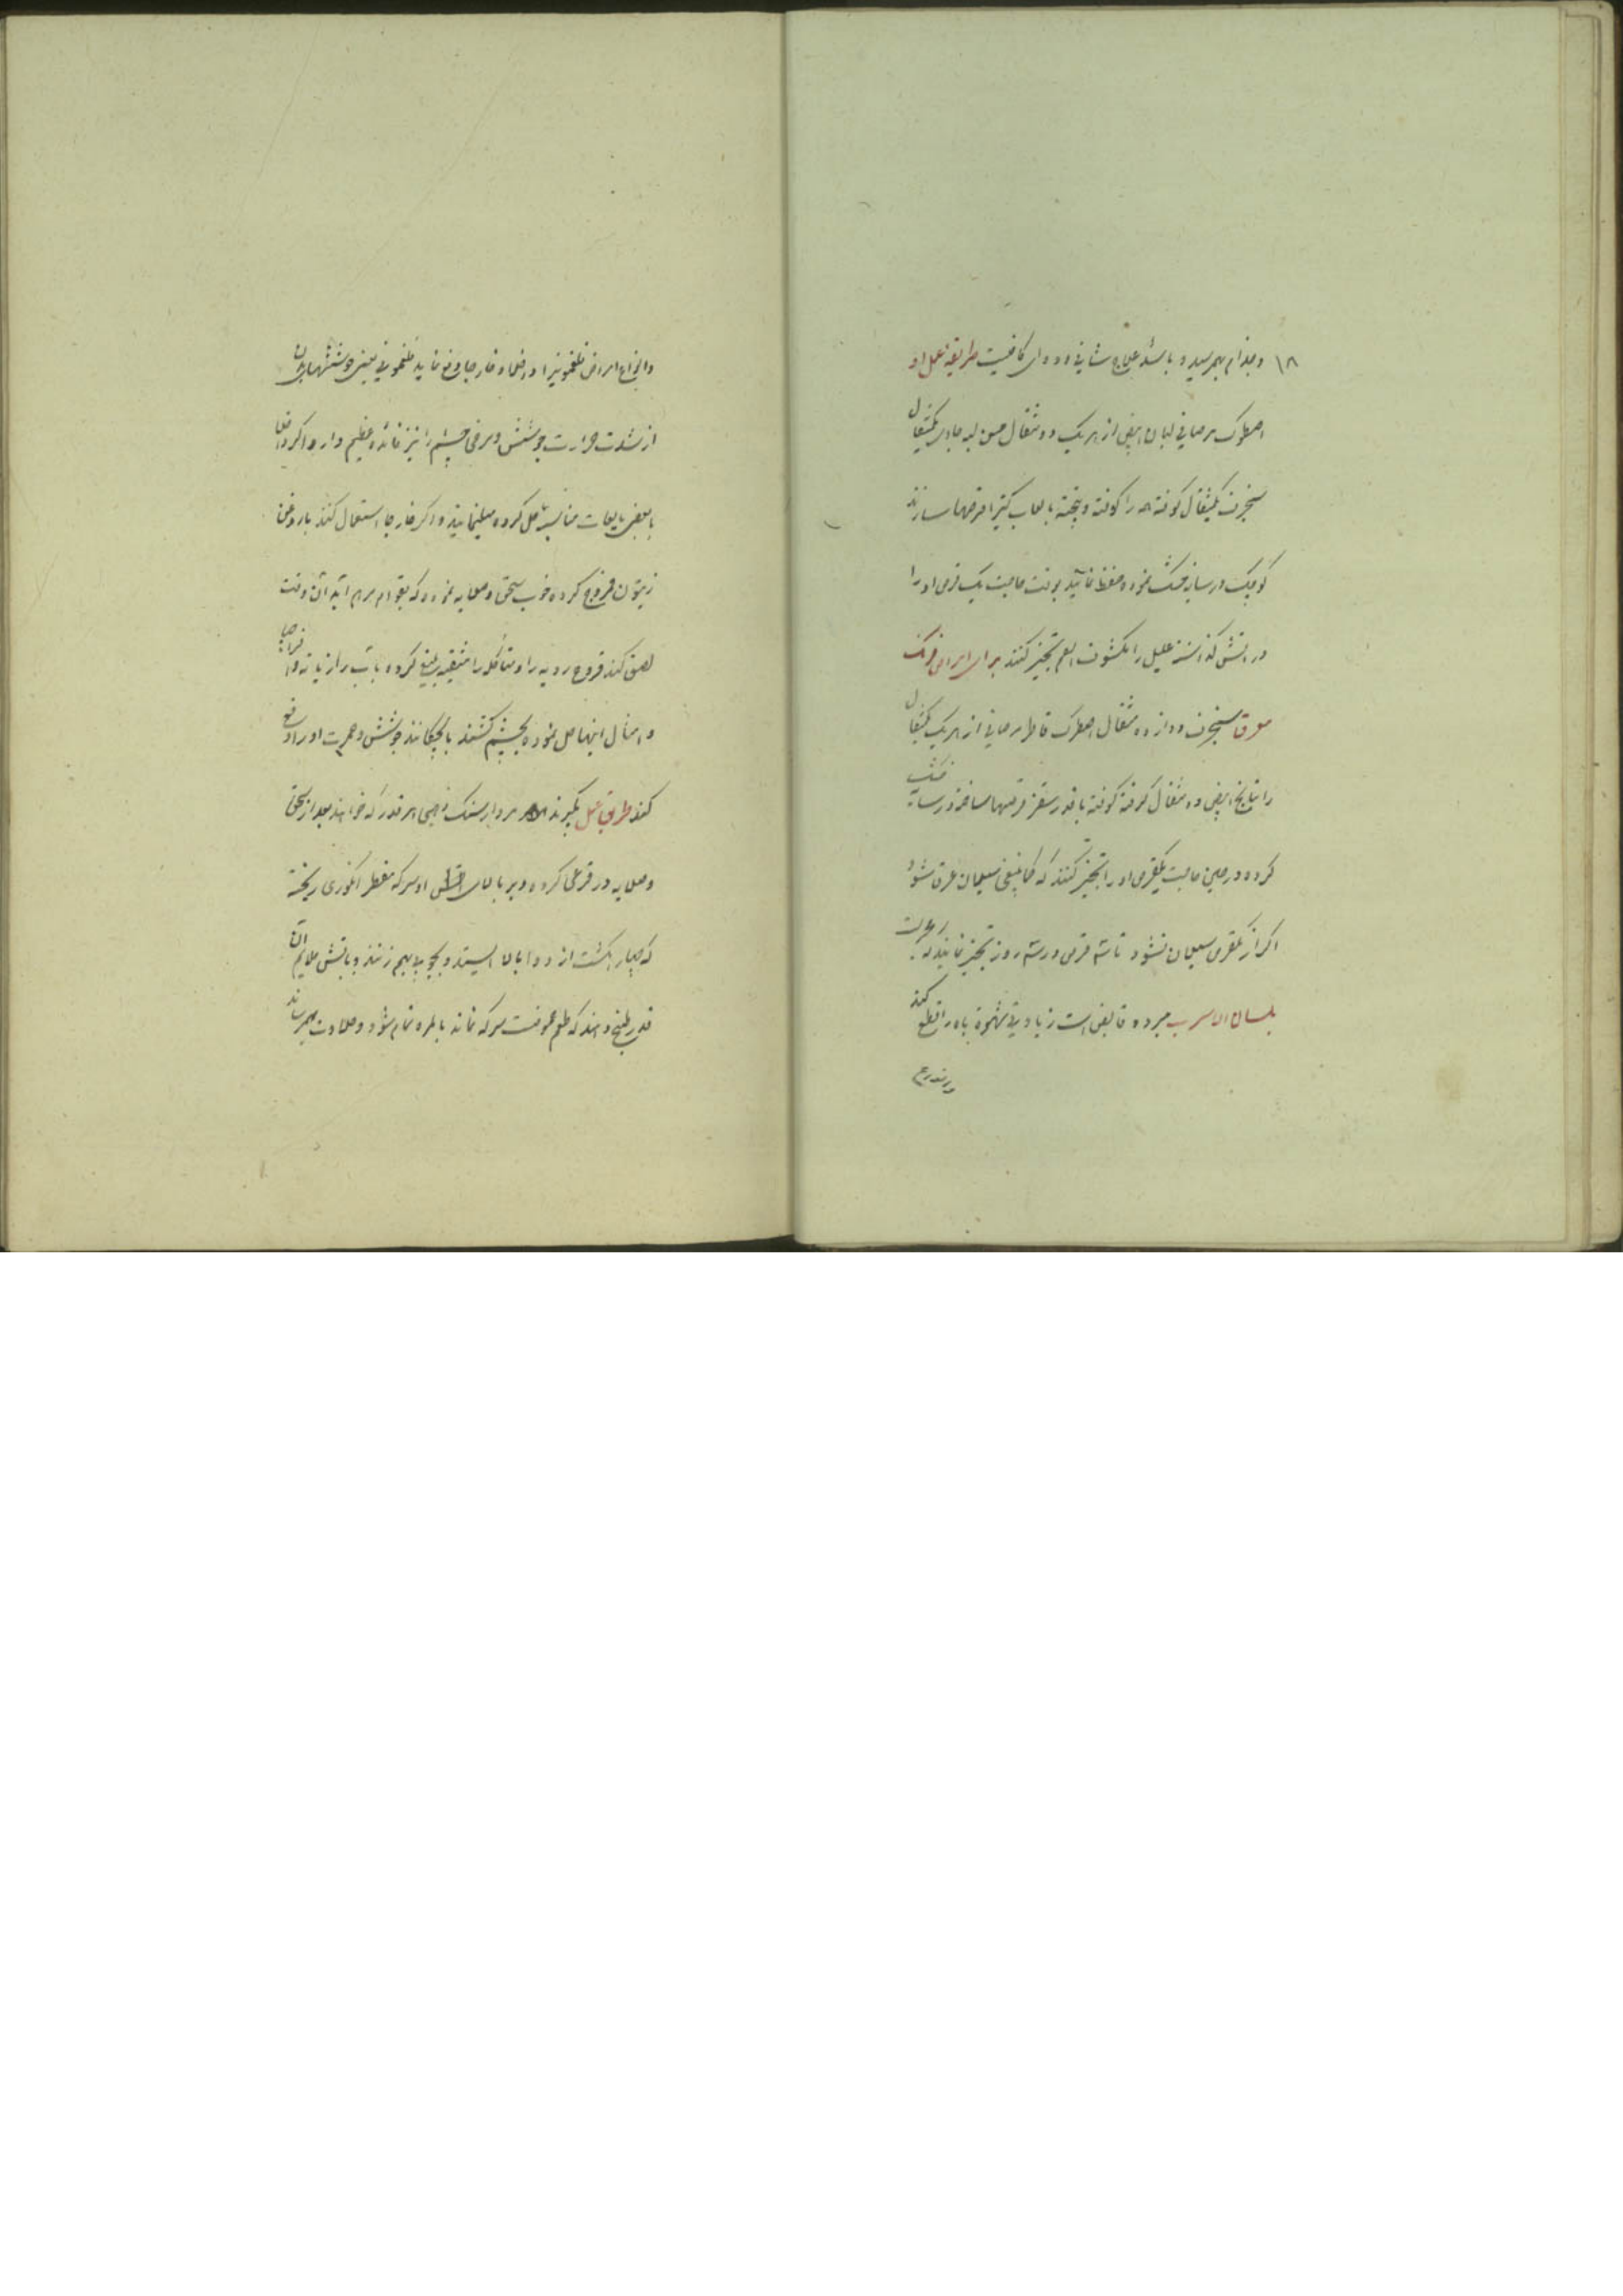 ۱۸ وجذام بهمرسیده باشد علاج شافی و دوای کافیست طریقه عمل او
اصطرک مرصافی لبان ابیض از هر یک دو مثقال حسن لبه جاوی یکمثقال
سنجرف یکمثقال کوفته را کوفته و پخته بالعاب کتیرا قرصها سازند
کوچک در سایه خشک نموده حفظ نمایند بوقت حاجت یک قرص او را
در آتش گذاشته علیل را مکشوف الفم تبخیر کنند برای امراض فرنک
معرق سنجرف دوازده مثقال اصطرک قاطر مرصافی از هر یک یکمثقال
راتیانج ابیض ده مثقال گرفته کوفته باقدر سقز قرصها ساخته در سایه خشک
کرده در حین حاجت یکقرص او را تبخیر کنند که کما ینبغی سیلان عرق شود
اگر از یکقرص سیلان نشود تا سه قرص در سه روز تبخیر نمایند که مجربست
بلسان السرب مبرد و قابض است زیادتی شهوة باه را قطع کند
وانواع امراض فلغمونیرا داخلا و خارجا دفع نماید فلغمونی یعنی جوششهای بدن
از شدت حرارت جوشش وسرخی چشم را نیز فائده عظیم دارد اگر داخلا
بابعض مایعات مناسبه حل کرده میل نمایند و اگر خارجا استعمال کنند باروغن
زیتون ممزوج کرده خوب سحق و صلایه نموده که بقوام مرهم آید آن وقت
لصق کنند قروح ردیه را و متأکله را تنقیه بلیغ کرده بآب رازیانه و
و امثال اینها حل نموده بچشم کشند یا بچکانند جوشش و حمرت او را دفع
کند طریق عمل بگیرند مردارسنک ذهبی هر قدر که خواهند بعد از سحق
وصلایه در قرعی کرده و بر بالای او سرکه مقطر انکوری ریخته
که چهار انکشت از دوا بالا ایستد و بچوبی بهم زنند و بآتش ملایم آن
قدر طبخ دهند که طعم عفوصت سرکه نماند بالمره تمام شود و حلاوت بهمرساند